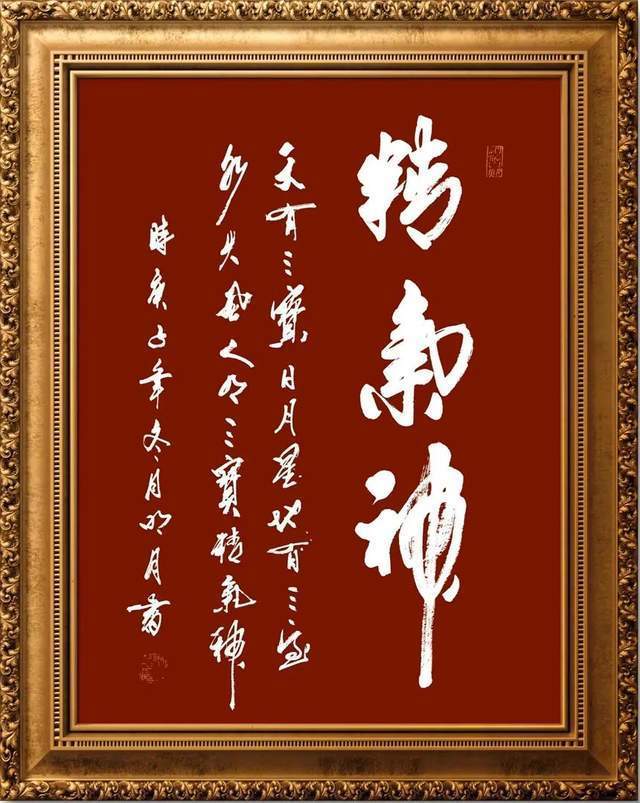 精氣神
天有三寶日月星地有三寶
水火風人有三寶精氣神
時庚子年冬月明月書